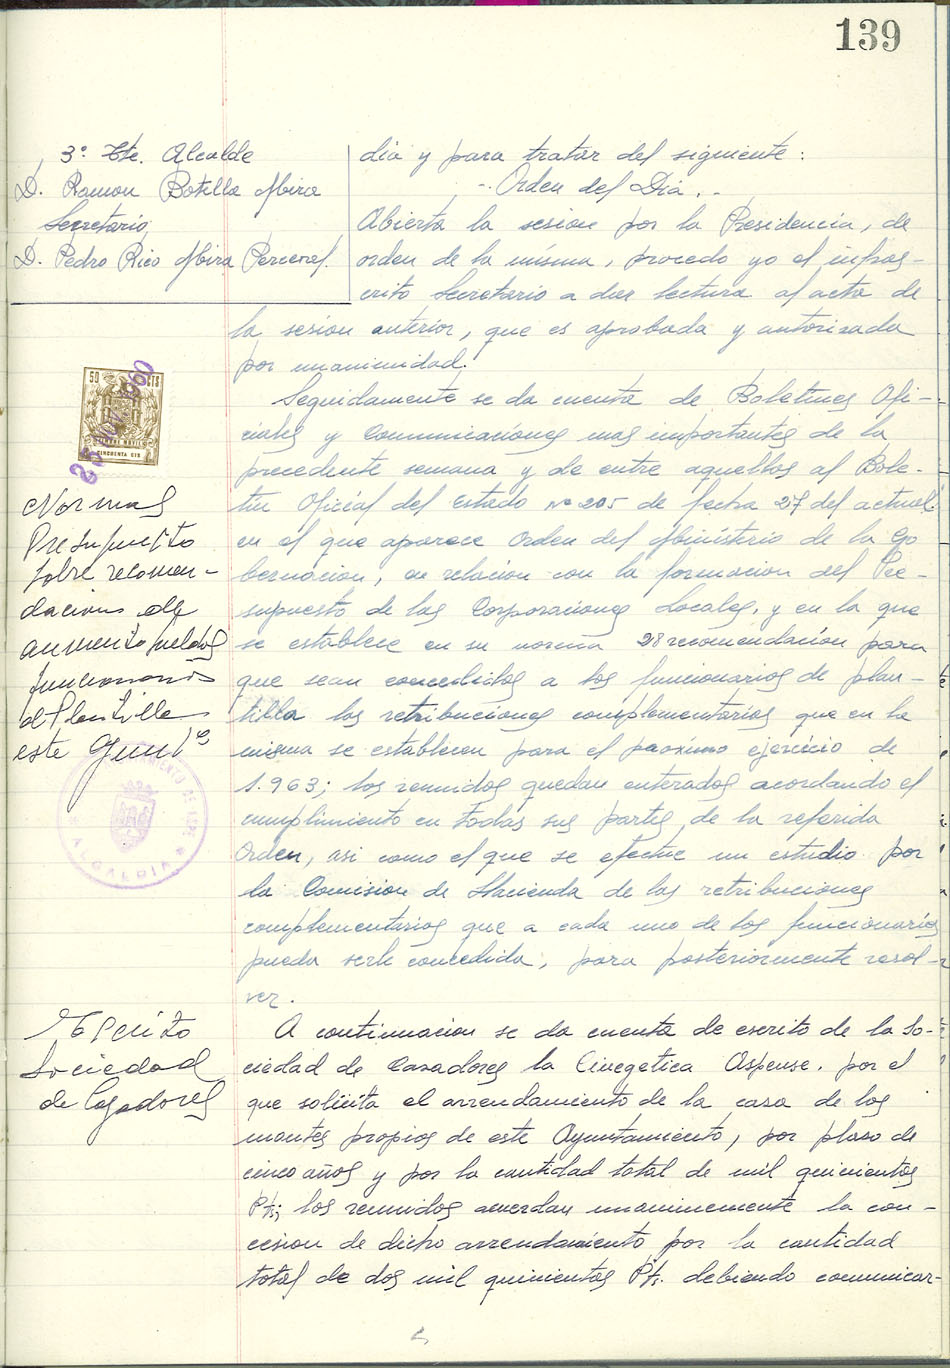 139
3º Tte. Alcalde
D. Ramon Botella Mira
Secretario
D. Pedro Rico Mira Perceval.
dia y para tratar del siguiente:
-. Orden del Dia .-
Abierta la sesion por la Presidencia, de
orden de la misma, procedo yo el infras-
crito Secretario a dar lectura al acta de
la sesion anterior, que es aprobada y autorizada
por unanimidad.
50 CTS
CINCUENTA CTS
Normas
Presupuesto
sobre recomen-
dacion de
aumento sueldos
funcionarios
de Plantilla
este Aymtº
Seguidamente se da cuenta de Boletines Ofi-
ciales y Comunicaciones mas importantes de la
precedente semana y de entre aquellos al Bole-
tin Oficial del Estado nº 205 de fecha 27 del actual
en el que aparece Orden del Ministerio de la Go
bernacion, en relacion con la formacion del Pre-
supuesto de las Corporaciones Locales, y en la que
se establece en su norma 28 recomendación para
que sean concedidos a los funcionarios de plan-
tilla las retribuciones complementarias que en la
misma se establecen para el proximo ejercicio de
1.963; los reunidos quedan enterados acordando el
cumplimiento en todas sus partes de la referida
Orden, asi como el que se efectue un estudio por
la Comision de Hacienda de las retribuciones
complementarias que a cada uno de los funcionarios
pueda serle concedida, para posteriormente resol-
ver.
ALCALDIA
Escrito
Sociedad
de Cazadores
A continuacion se da cuenta de escrito de la So-
ciedad de Cazadores la Cinegetica Aspense, por el
que solicita el arrendamiento de la caza de los
montes propios de este Ayuntamiento, por plaso de
cinco años y por la cantidad total de mil quinientas
Pts; los reunidos acuerdan unanimemente la con-
cesion de dicho arrendamiento por la cantidad
total de dos mil quinientas Pts. debiendo comunicar-